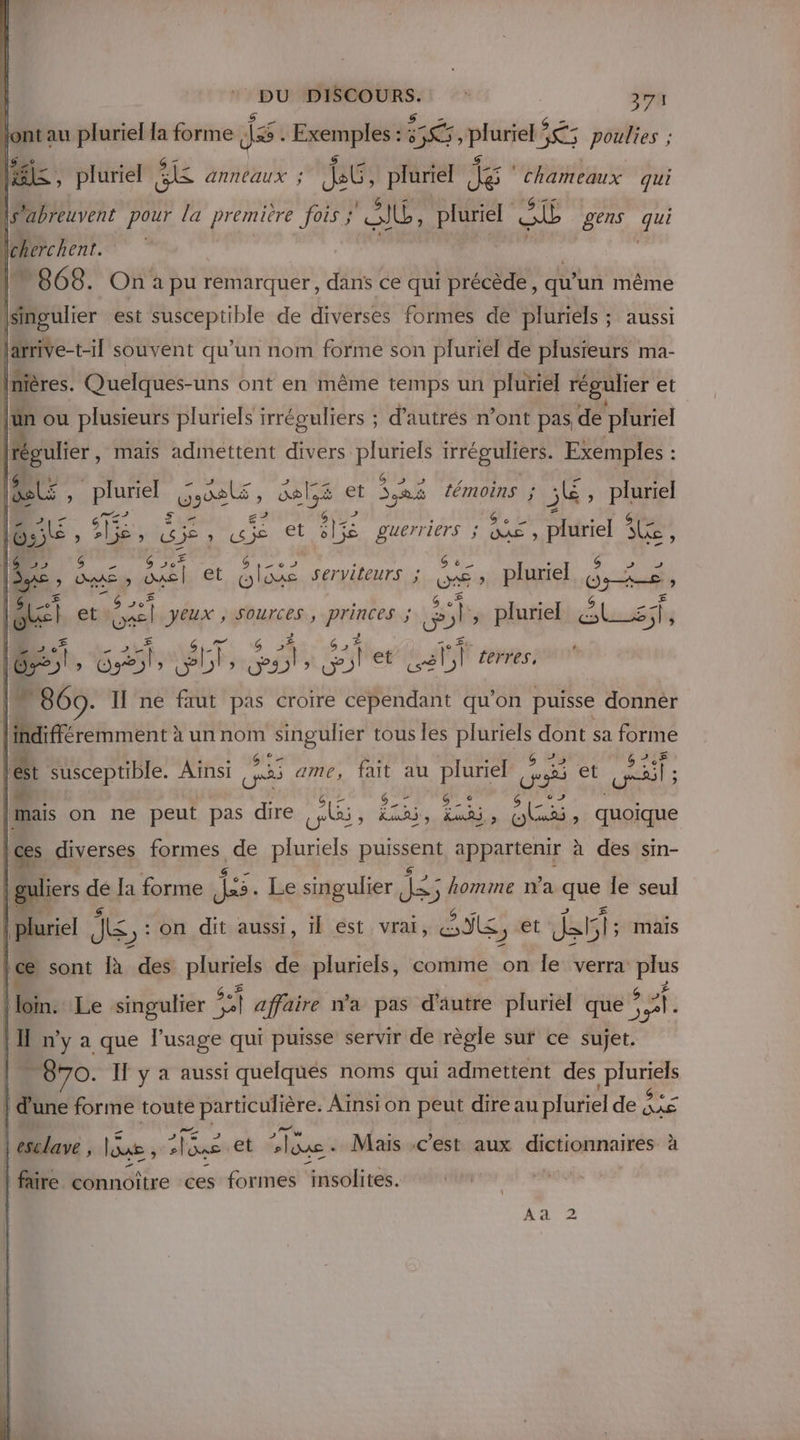 DU DISCOURS. 371
ont au pluriel la forme فَعَلٌ. Exemples : بَكْرَةٌ, pluriel بَكَرٌ poulies ;
حَلْقَةٌ, pluriel حَلَقٌ anneaux ; نَاهِلٌ, pluriel نَهَلٌ chameaux qui
s'abreuvent pour la première fois ; طَالِبٌ, pluriel طَلَبٌ gens qui
cherchent.
868. On a pu remarquer, dans ce qui précède, qu'un même
singulier est susceptible de diverses formes de pluriels ; aussi
arrive-t-il souvent qu'un nom forme son pluriel de plusieurs ma-
nières. Quelques-uns ont en même temps un pluriel régulier et
un ou plusieurs pluriels irréguliers ; d'autres n'ont pas de pluriel
régulier, mais admettent divers pluriels irréguliers. Exemples :
شَاهِدٌ, pluriel شَاهِدُونَ, شَوَاهِدُ et شُهُودٌ témoins ; غَازٍ, pluriel
غَازُونَ, غُزَّاءٌ, غُزًّى, غَزِىٌّ et غُزَاةٌ guerriers ; عَبْدٌ, pluriel عِبَادٌ,
عُبُودٌ, عَبِيدٌ, أَعْبُدٌ et عِبْدَانٌ serviteurs ; عَيْنٌ, pluriel عُيُونٌ,
أَعْيَانٌ et أَعْيُنٌ yeux, sources, princes ; أَرْضٌ, pluriel أَرَضَاتٌ,
أَرَضُونَ, أَرْضُونَ, آرَاضٌ, أُرُوضٌ, أَرْضٌ et أَرَاضِى terres.
869. Il ne faut pas croire cependant qu'on puisse donner
indifféremment à un nom singulier tous les pluriels dont sa forme
est susceptible. Ainsi نَفْسٌ ame, fait au pluriel نُفُوسٌ et أَنْفُسٌ ;
mais on ne peut pas dire نِفَاسٌ, نِفَسَةٌ, نِفْسَةٌ, نُفْسَانٌ, quoique
ces diverses formes de pluriels puissent appartenir à des sin-
guliers de la forme فَعْلٌ. Le singulier رَجُلٌ homme n'a que le seul
pluriel رِجَالٌ : on dit aussi, il est vrai, رِجَالَاتٌ et أَرَاجِلُ ; mais
ce sont là des pluriels de pluriels, comme on le verra plus
loin. Le singulier أَمْرٌ affaire n'a pas d'autre pluriel que أُمُورٌ.
Il n'y a que l'usage qui puisse servir de règle sur ce sujet.
870. Il y a aussi quelques noms qui admettent des pluriels
d'une forme toute particulière. Ainsi on peut dire au pluriel de عَبْدٌ
esclave, عِبِدَّا, عِبِدَّاءُ et عِبْدَاءُ. Mais c'est aux dictionnaires à
faire connoître ces formes insolites.
Aa 2